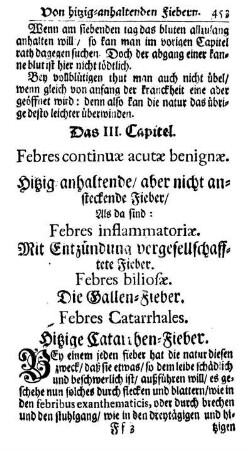 Von hitzig-anhaltenden Fiebern. 453
Wenn am siebenden tag das bluten allzulang
anhalten will / so kan man im vorigen Capitel
rath dagegen suchen. Doch der abgang einer kan-
ne blut ist hier nicht tödtlich.
Bey vollblütigen thut man auch nicht übel /
wenn gleich von anfang der kranckheit eine ader
geöffnet wird : denn also kan die natur das übri-
ge desto leichter überwinden.
Das III. Capitel.
Febres continuæ acutæ benignæ.
Hitzig-anhaltende / aber nicht an-
steckende Fieber /
Als da sind :
Febres inflammatoriæ.
Mit Entzündung vergesellschaff-
tete Fieber.
Febres biliosæ.
Die Gallen-Fieber.
Febres Catarrhales.
Hitzige Catarrhen-Fieber.
BEy einem jeden fieber hat die natur diesen
zweck / daß sie etwas / so dem leibe schädlich
und beschwerlich ist / außführen will / es ge-
schehe nun solches durch flecken und blattern / wie in
den febribus exanthematicis, oder durch brechen
und den stuhlgang / wie in den dreytägigen und hi-
Ff 3 tzigen